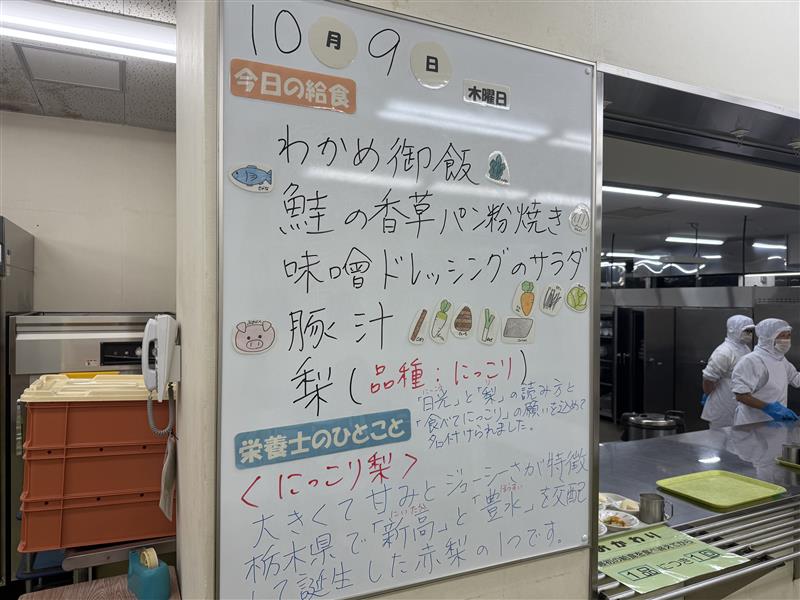 10月9日
木曜日
今日の給食
わかめ御飯
鮭の香草パン粉焼き
味噌ドレッシングのサラダ
豚汁
梨(品種:にっこり)
「日光」と「梨」の読み方と
「食べてにっこり」の願いを込めて
名付けられました。
栄養士のひとこと
<にっこり梨>
大きくて甘みとジューシーさが特徴
栃木県で「新高」と「豊水」を交配
して誕生した赤梨の1つです。
おかわり
1品につき1回